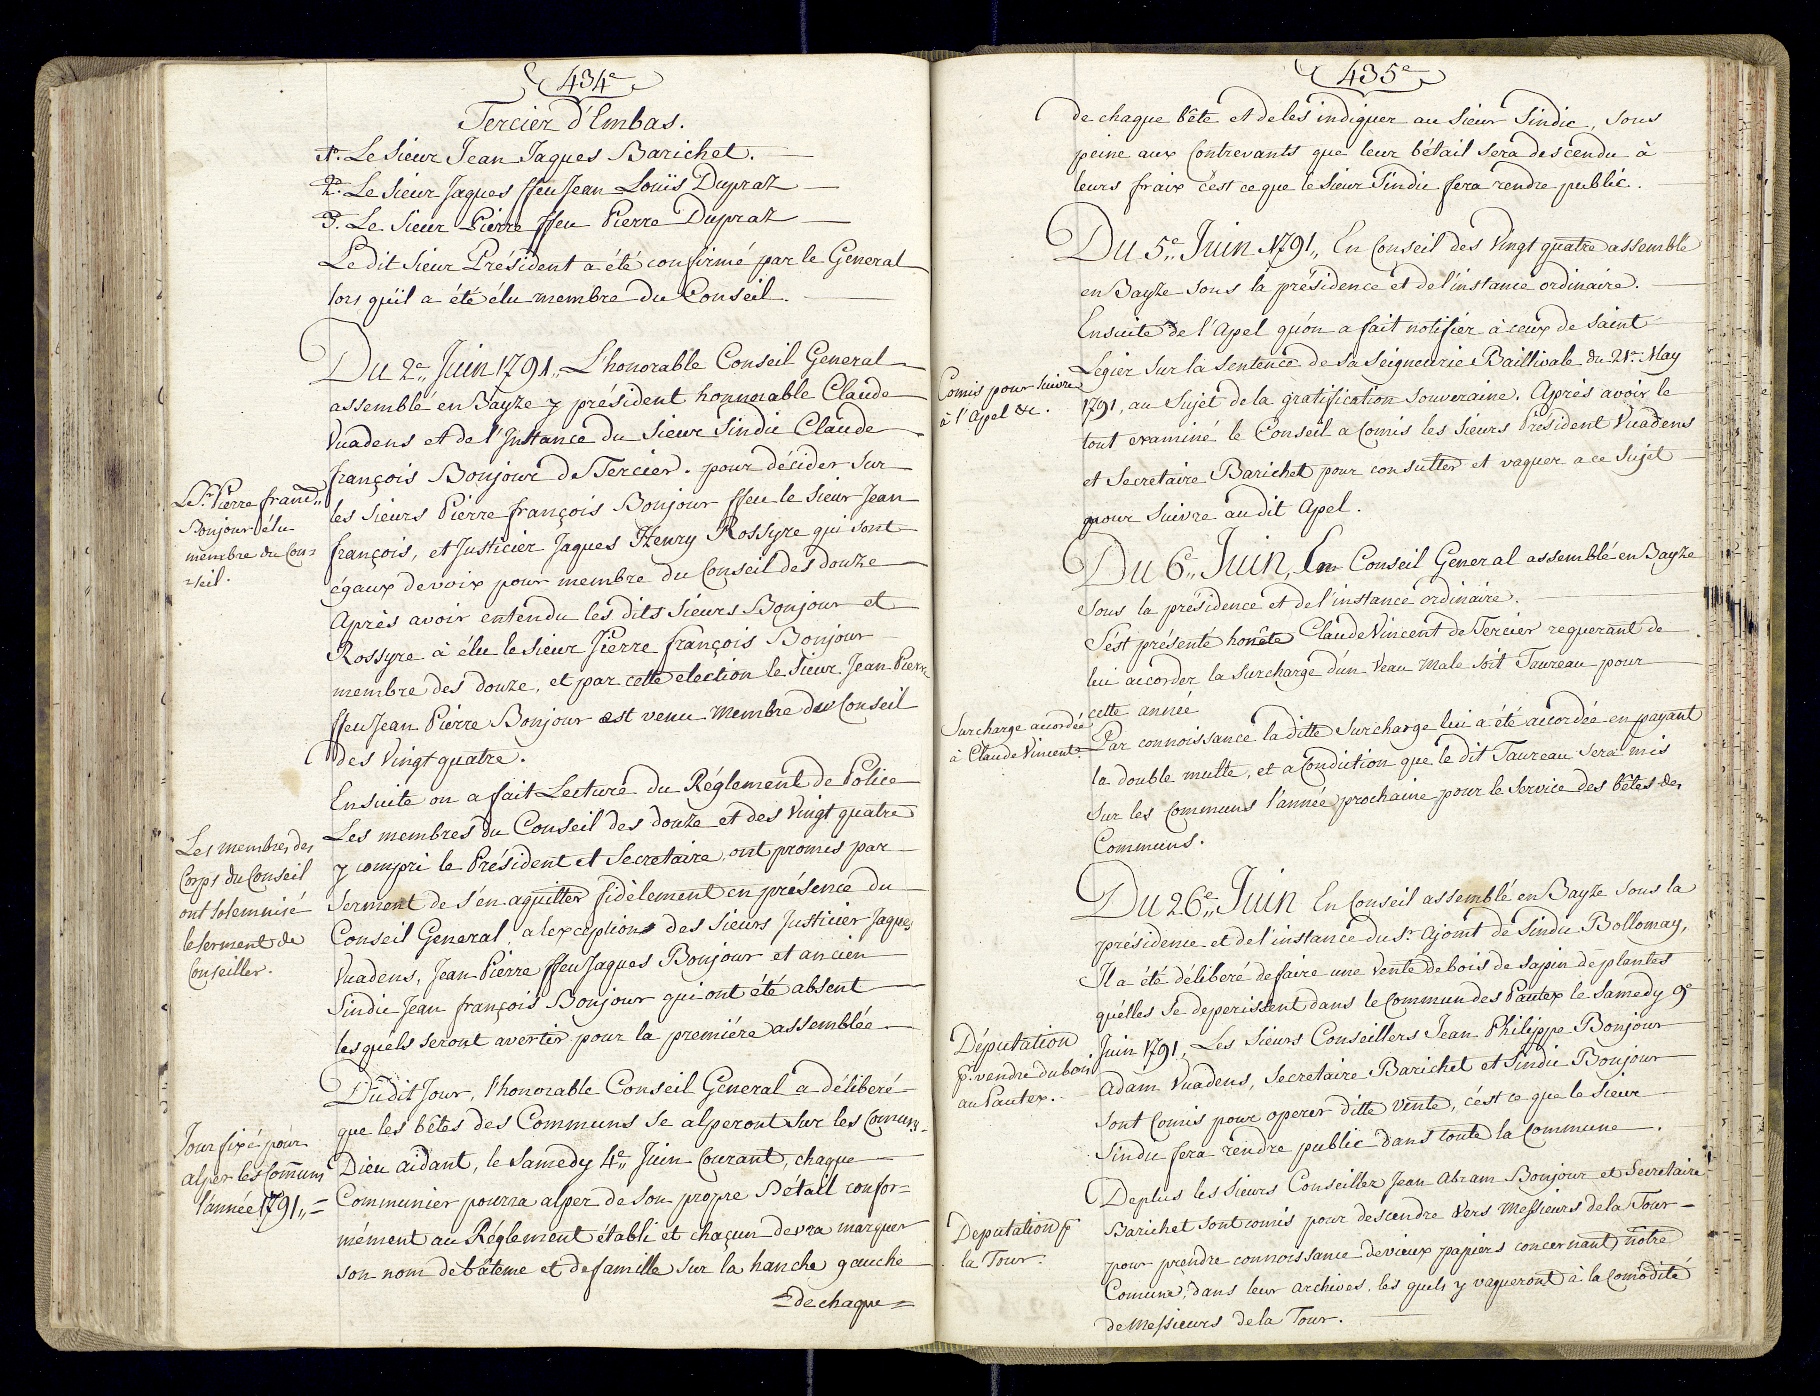 434e
Tercier d'Embas.
1o. Le Sieur Jean Jaques Barichet.
2o. Le Sieur Jaques ffeu Jean Louïs Dupraz
3. Le Sieur Pierre ffeu Pierre Dupraz
Le dit Sieur Président a été confirmé par le General
lors qu'il a été élu membre du Conseil.
Du 2e,, Juin 1791,, L'honorable Conseil General
assemblé en Bayze y président honnorable Claude
Vuadens et de l'Instance du Sieur Sindic Claude
françois Bonjour de Tercier. pour décider sur
Le Sr. Pierre franc,,
Bonjour élu
membre du Con=
=seil.
les Sieurs Pierre françois Bonjour ffeu le Sieur Jean
françois, et Justicier Jaques Henry Rossyre qui sont
égaux de voix pour membre du Conseil des douze
Après avoir entendu les dits Sieurs Bonjour et
Rossyre à élu le Sieur Pierre françois Bonjour
membre des douze, et par cette election le Sieur Jean Pierre
ffeu Jean Pierre Bonjour est venu membre du Conseil
des Vingt quatre.
Ensuite on a fait Lecture du Réglement de Police
Les membres des
Corps du Conseil
ont Solemnisé
le serment de
Conseiller.
Les membres du Conseil des douze et des Vingt quatre
y compri le Président et Secretaire, ont promis par
Serment de s'en aquitter fidélement en présence du
Conseil General, a lexception des Sieurs Justicier Jaques
Vuadens, Jean Pierre ffeu Jaques Bonjour et ancien
Sindic Jean françois Bonjour qui ont été absent
les quels seront avertis pour la premiére assemblée
Dudit Jour, l'honorable Conseil General a déliberé
que les bêtes des Communs se alperont sur les Comuns
Jour fixé pour
alper les Comuns
l'année 1791,,=
Dieu aidant, le Samedy 4e,, Juin Courant, chaque
Communier pourra alper de son propre Bétail confor=
mément au Réglement établi et chaqun devra marquer
son nom de bâteme et de famille sur la hanche gauche
=de chaque=
435e
de chaque bête et de les indiquer au Sieur Sindic, sous
peine aux Contrevants que leur bétail sera descendu à
leurs fraix c'est ce que le Sieur Sindic fera rendre public.
Du 5e,, Juin 1791,, En Conseil des Vingt quatre assemblé
en Bayze sous la présidence et de l'instance ordinaire.
Ensuite de l'Apel qu'on a fait notifier à ceux de Saint
Comis pour Suivre
à l'Apel &c.
Légier sur la Sentence de Sa Seigneurie Baillivale du 21e. May
1791, au Sujet de la gratification Souveraine. Après avoir le
tout examiné le Conseil a Comis les Sieurs Président Vuadens
et Secretaire Barichet pour consulter et vaquer a ce Sujet
pour Suivre au dit Apel.
Du 6,, Juin, En Conseil General assemblé en Bayze
Sous la présidence et de l'instance ordinaire.
S'est présenté honête Claude Vincent de Tercier requerant de
lui accorder la Surcharge d'un Veau Male soit Taureau pour
cette année
Surcharge accordée
à Claude Vincent.
Par connoissance la ditte Surcharge lui a été accordée en payant
la double multe, et a Condiction que le dit Taureau sera mis
sur les Communs l'année prochaine, pour le Service des bêtes des
Communs.
Du 26e,, Juin En Conseil assemblé en Bayze sous la
présidence et de l'instance du Sr. Ajoint de Sindic Bollomay,
Il a été déliberé de faire une Vente de bois de sapin de plantes
qu'elles se deperissent dans le Commun des Pautex le Samedy 9e
Députation
p. vendre du bois
au Pautex.
Juin 1791,, Les Sieurs Conseillers Jean Philippe Bonjour
Adam Vuadens, Secretaire Barichet et Sindic Bonjour
sont Comis pour operer ditte Vente, c'est ce que le Sieur
Sindic fera rendre public dans toute la Commune.
Deplus les Sieurs Conseiller Jean Abram Bonjour et Secretaire
Deputation p.
la Tour.
Barichet sont comis pour descendre vers Messieurs de la Tour
pour prendre connoissance de vieux papiers concernant nôtre
Comune, dans leur archives, les quels y vaqueront à la Comôdité
de Messieurs de la Tour.